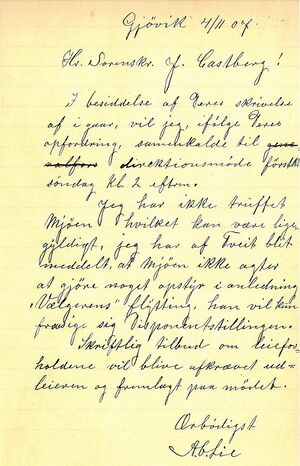 Gjövik 4/11 07.
Hr. Sorenskr. J. Castberg!
I besiddelse af Deres skrivelse
af i gaar, vil jeg, ifölge Deres
opfordring, sammenkalde til
direktionsmöde förstk.
söndag kl. 2 eftm.
Jeg har ikke truffet
Mjöen hvilket kan være lige-
gyldigt, jeg har af Tveit blit
meddelt, at Mjöen ikke agter
at gjöre noget opstyr i anledning
"Vælgerens" flytting, han vil kun
frasige sig Disponentstillingen.
Skriftlig tilbud om leiefor-
holdene vil blive afkrævet ud-
leieren og fremlagt paa mödet.
Ærbödigst
A.b. Lie